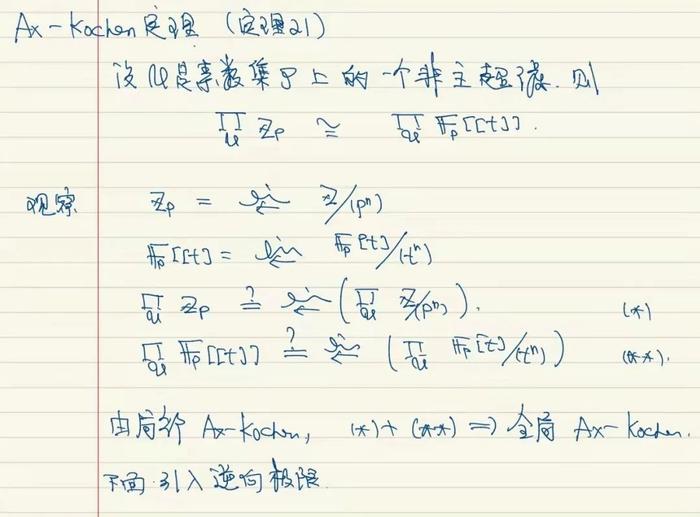 Ax-Kochen定理 (定理21)
设 𝒰 是素数集 𝒫 上的一个非主超滤, 则
∏_𝒰 ℤp ≅ ∏_𝒰 𝔽p[[t]].
观察 ℤp = lim← ℤ/(pⁿ)
𝔽p[[t]] = lim← 𝔽p[t]/(tⁿ)
∏_𝒰 ℤp ≟ lim← (∏_𝒰 ℤ/(pⁿ)). (*)
∏_𝒰 𝔽p[[t]] ≟ lim← (∏_𝒰 𝔽p[t]/(tⁿ)) (**).
由局部 Ax-Kochen, (*)+(**) ⇒ 全局 Ax-Kochen.
下面引入逆向极限